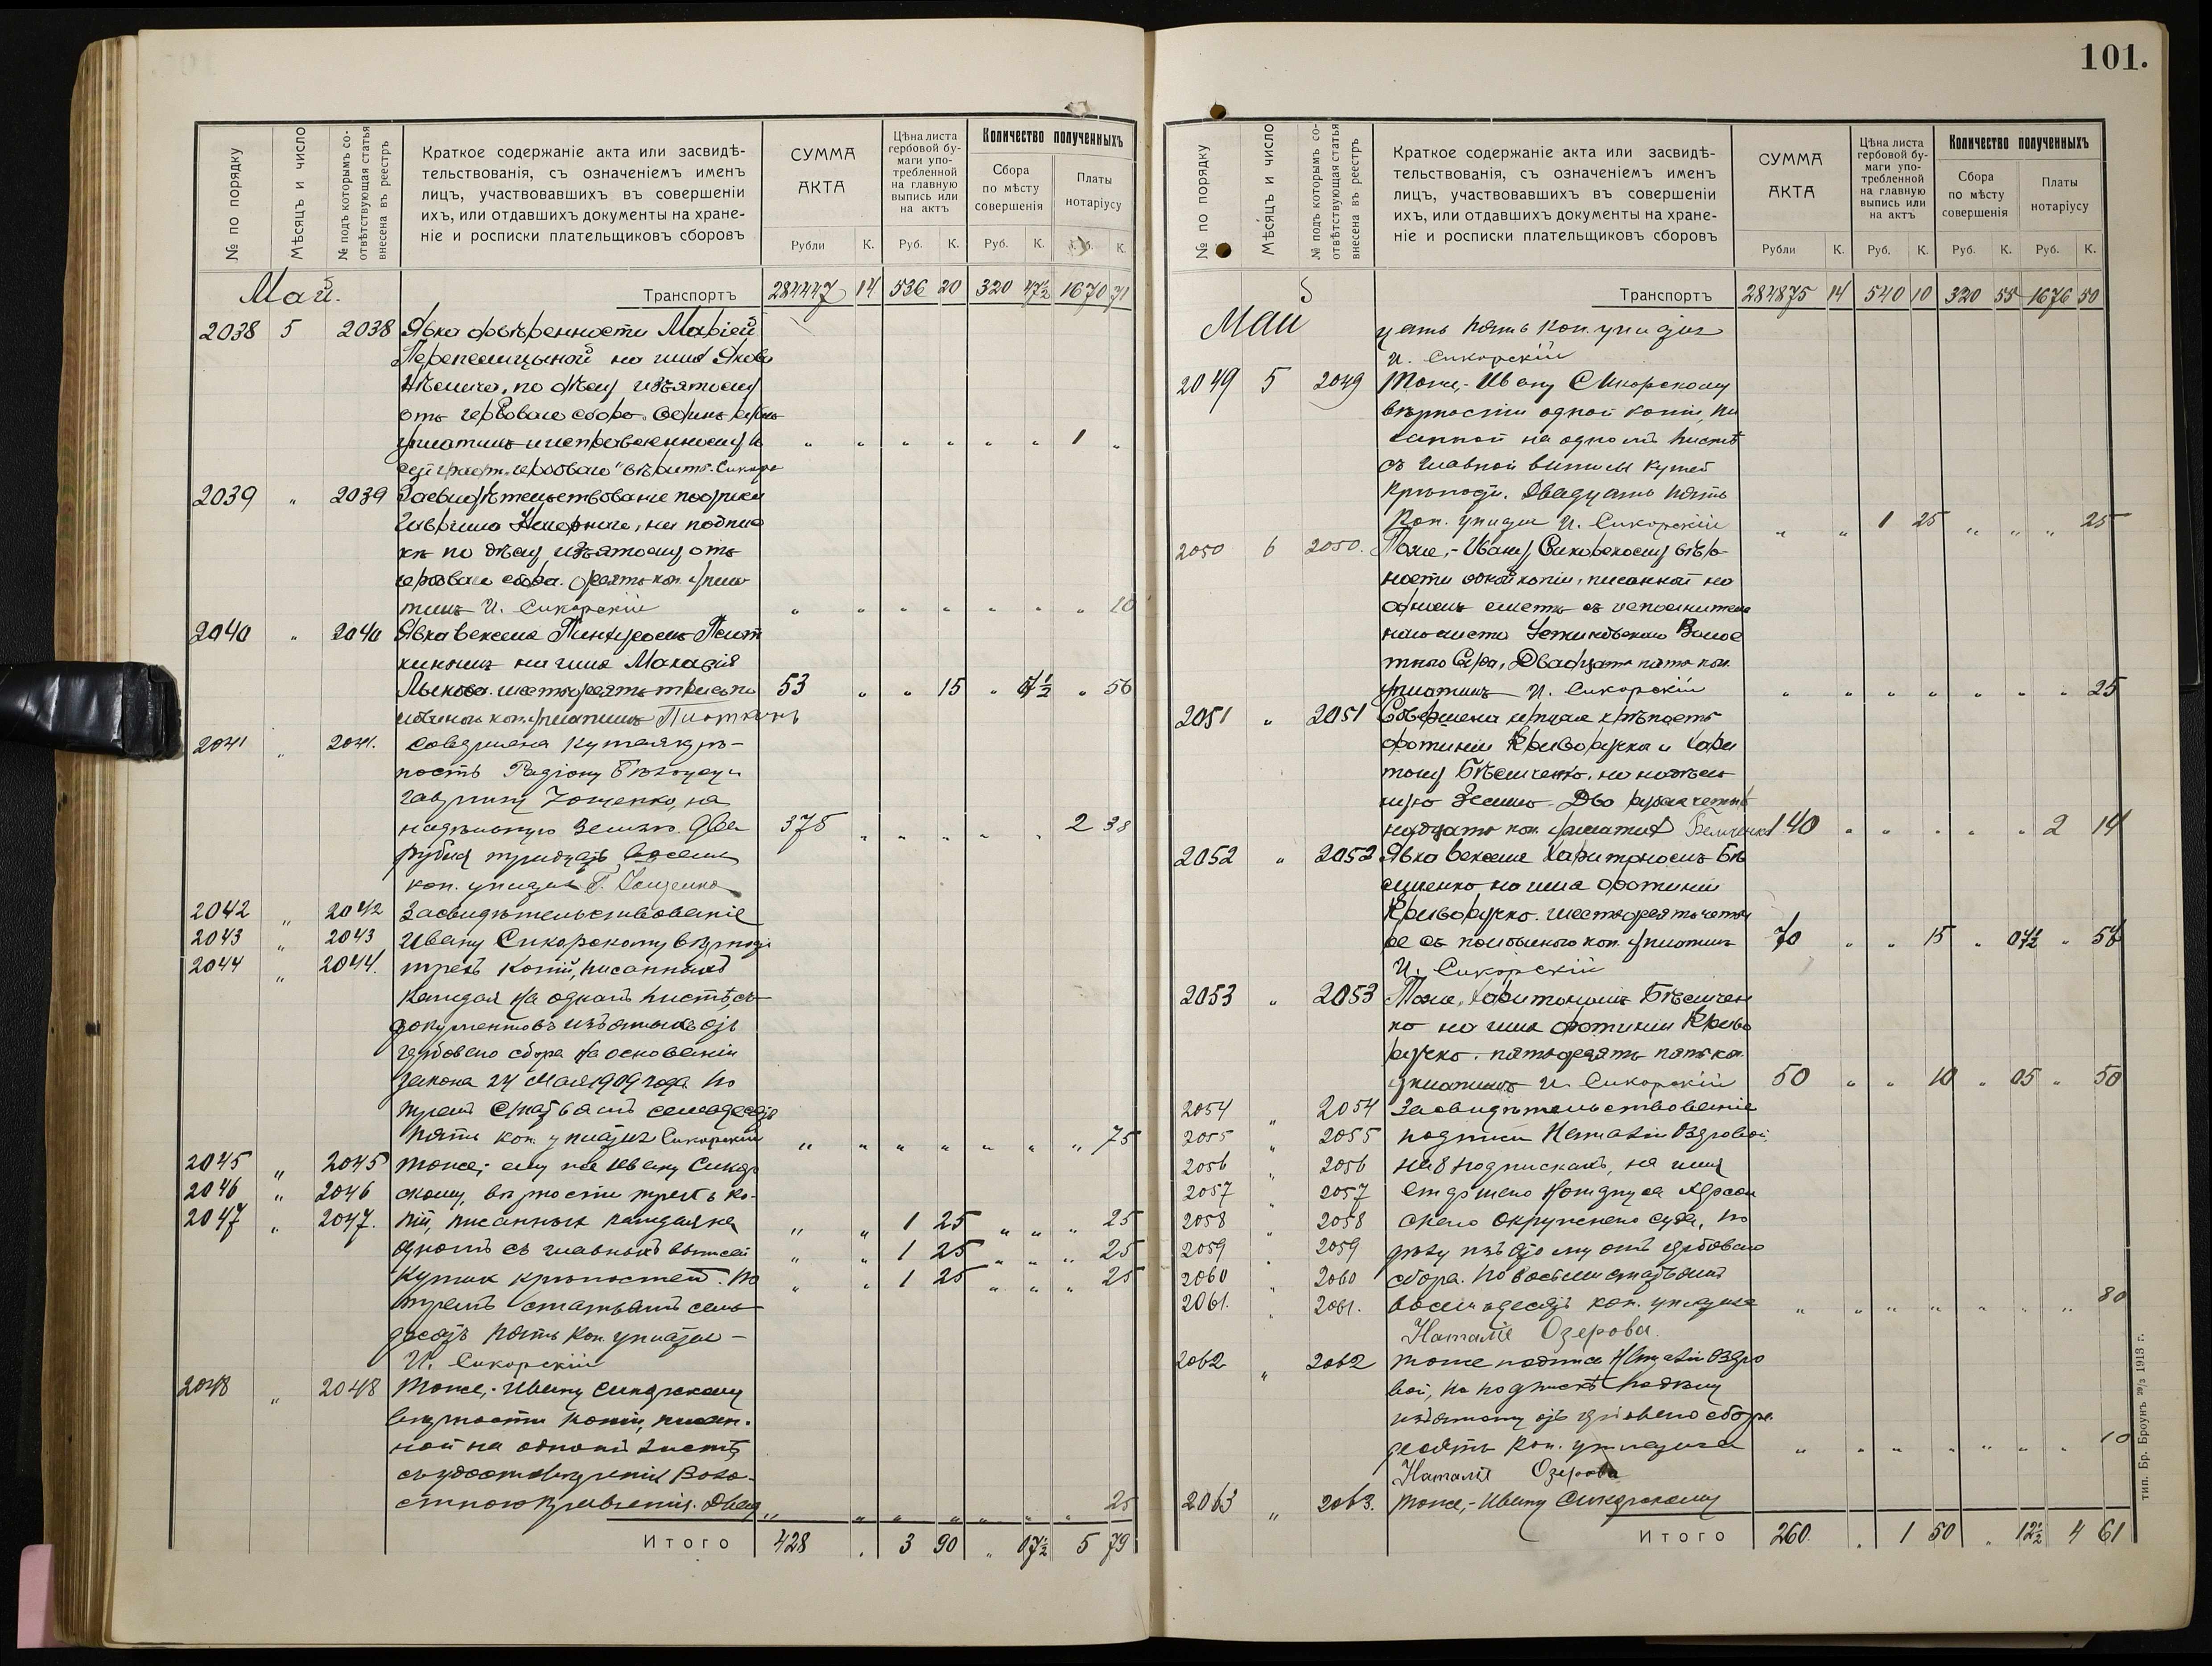 101.
№ по порядку
Мѣсяцъ и число
№ подъ которымъ со-
отвѣтствующая статья
внесена въ реестръ
Краткое содержаніе акта или засвидѣ-
тельствованія, съ означеніемъ именъ
лицъ, участвовавшихъ въ совершеніи
ихъ, или отдавшихъ документы на хране-
ніе и росписки плательщиковъ сборовъ
СУММА
АКТА
Рубли К.
Цѣна листа
гербовой бу-
маги упо-
требленной
на главную
выпись или
на актъ
Руб. К.
Количество полученныхъ
Сбора
по мѣсту
совершенія
Руб. К.
Платы
нотаріусу
К.
Май. Транспортъ 284447 14 536 20 320 47½ 1670 71
2038 5 2038 Явка довѣренности Маріей
Перепелицыной на имя Якова
по дѣлу изъятому
отъ гербоваго сбора. Одинъ рубль
уплатилъ " " " " " " 1 "
2039 " 2039 Засвидѣтельствованіе подписи
Гавріила на подпис
кѣ по дѣлу изъятому отъ
гербоваго сбора. Десять коп. упла
тилъ И. Сикорскій " " " " " " " 10
2040 " 2040 Явка векселя Плот
никомъ на имя Макарія
Лыкова. шестьдесятъ три съ по 53 " " 15 " 07½ " 56
ловиною коп. уплатилъ Плотникъ
2041 " 2041. Совершена купчая крѣ-
пость Радіону
Гавриилу Зощенко, на
надѣльную землю. Два 375 " " " " " 2 38
рубля тридцать восемь
коп. уплатилъ Г. Зощенко
2042 " 2042 Засвидѣтельствованіе
2043 " 2043 Ивану Сикорскому вѣрности
2044 " 2044. трехъ копій, писанныхъ
каждая на одномъ листѣ, съ
документовъ изъятыхъ отъ
гербоваго сбора на основаніи
закона 24 Мая 1909 года. По
тремъ статьямъ семьдесятъ
пять коп. уплатилъ Сикорскій " " " " " " " 75
2045 " 2045 Тоже,- ему же Ивану Сикор
2046 " 2046 скому, вѣрности трехъ ко-
2047 " 2047. пій, писанныхъ каждая на " " 1 25 " " " 25
одномъ съ главныхъ выписей " " 1 25 " " " 25
купчихъ крѣпостей. По " " 1 25 " " " 25
тремъ статьямъ семь
десятъ пять коп. уплатилъ -
И. Сикорскій
2048 " 2048 Тоже,- Ивану Сикорскому
вѣрности копіи, писан-
ной на одномъ листѣ,
съ удостовѣренія Воло-
стного Правленія. Двад " " " " " " " 25
Итого 428 . 3 90 " 07½ 5 79
№ по порядку
Мѣсяцъ и число
№ подъ которымъ со-
отвѣтствующая статья
внесена въ реестръ
Краткое содержаніе акта или засвидѣ-
тельствованія, съ означеніемъ именъ
лицъ, участвовавшихъ въ совершеніи
ихъ, или отдавшихъ документы на хране-
ніе и росписки плательщиковъ сборовъ
СУММА
АКТА
Рубли К.
Цѣна листа
гербовой бу-
маги упо-
требленной
на главную
выпись или
на актъ
Руб. К.
Количество полученныхъ
Сбора
по мѣсту
совершенія
Руб. К.
Платы
нотаріусу
Руб. К.
Май Транспортъ 284875 14 540 10 320 55 1676 50
цать пять коп. уплатилъ
И. Сикорскій
2049 5 2049 Тоже,- Ивану Сикорскому
вѣрности одной копіи, пи
санной на одномъ листѣ
съ главной выписи купчей
крѣпости. Двадцать пять
коп. уплатилъ И. Сикорскій " " 1 25 " " " 25
2050 6 2050. Тоже,- Ивану Сикорскому вѣр-
ности одной копіи, писанной на
одномъ листѣ съ исполнитель
наго листа Волос
тного Суда, Двадцать пять коп.
уплатилъ И. Сикорскій " " " " " " " 25
2051 " 2051 Совершена купчая крѣпость
Фотиніи Криворучко и Хари
тону Бѣлименко, на надѣль
ную землю. Два рубля четыр
надцать коп. уплатилъ 140 " " " " " 2 14
2052 " 2052 Явка векселя Харитономъ Бѣ
лименко на имя Фотиніи
Криворучко. шестьдесятъ четы
ре съ половиною коп. уплатилъ 70 " " 15 " 07½ " 57
И. Сикорскій
2053 " 2053 Тоже, Харитономъ Бѣлимен
ко на имя Фотиніи Криво
ручко. пятьдесятъ пять коп.
уплатилъ И. Сикорскій 50 " " 10 " 05 " 50
2054 " 2054 Засвидѣтельствованіе
2055 " 2055 подписи Наталіи Озеровой,
2056 " 2056 на 8 подпискахъ, на имя
2057 " 2057 старшаго Нотаріуса Херсон
2058 " 2058 скаго Окружнаго суда, по
2059 " 2059 дѣлу изъятому отъ гербоваго
2060 " 2060 сбора. По восьми статьямъ
2061. " 2061. восемьдесятъ коп. уплатила " " " " " " " 80
Наталія Озерова.
2062 " 2062 Тоже подписи Наталіи Озеро
вой, на подпискѣ по дѣлу
изъятому отъ гербоваго сбора.
десять коп. уплатила " " " " " " " 10
Наталія Озерова
2063 " 2063. Тоже,- Ивану Сикорскому
Итого 260 . 1 50 " 12½ 4 61
тип. Бр. Броунъ 29/3 1913 г.